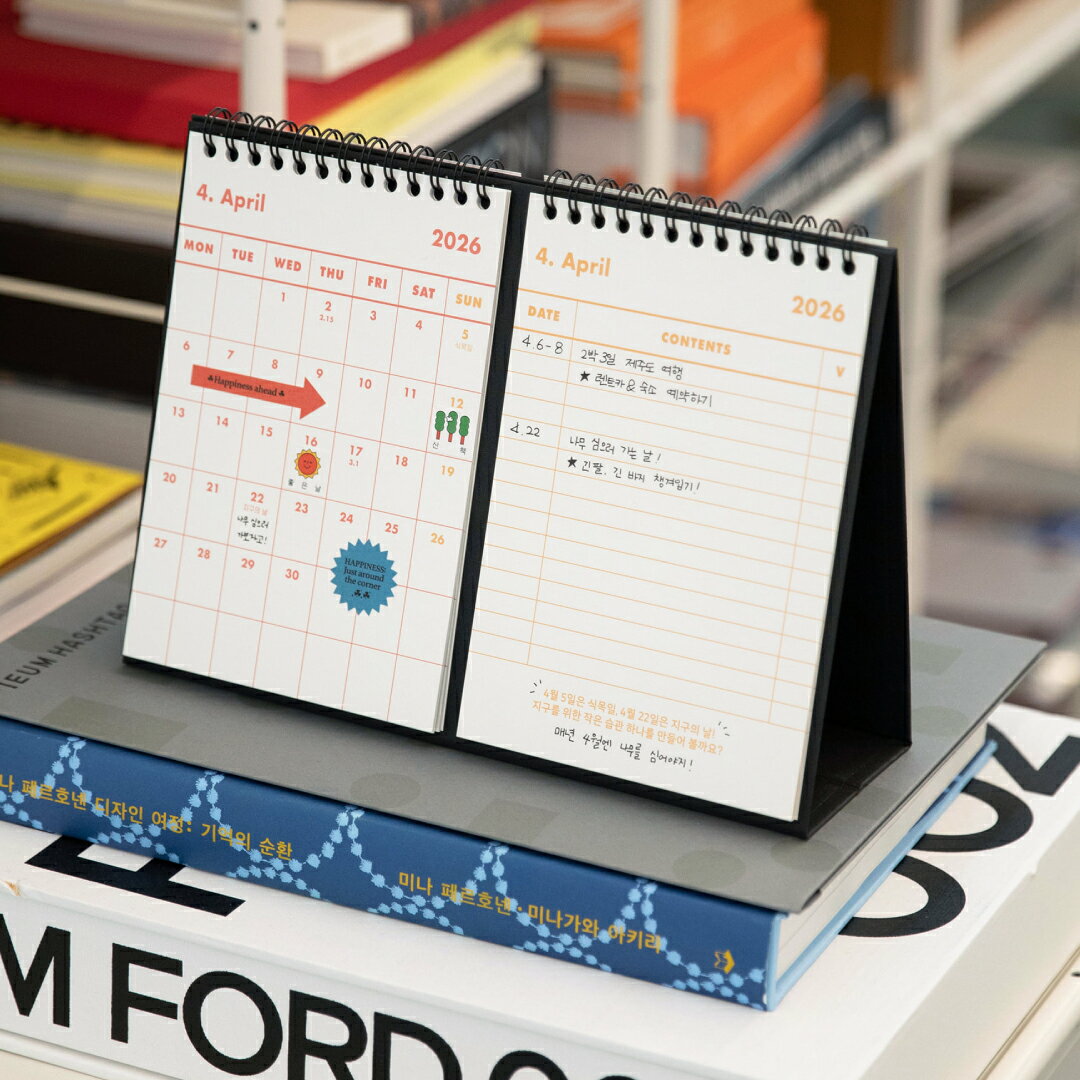 4. April
2026
MON TUE WED THU FRI SAT SUN
1 2 3 4 5
2.15 식목일
6 7 8 9 10 11 12
♣Happiness ahead♣
산 책
13 14 15 16 17 18 19
3.1
좋 은 날
20 21 22 23 24 25 26
지구의 날
나무 심으러
가보자고!
27 28 29 30
HAPPINESS:
Just around
the corner
4. April
2026
DATE CONTENTS V
4.6-8 2박 3일 제주도 여행
★ 렌트카 & 숙소 예약하기
4.22 나무 심으러 가는 날!
★ 긴팔, 긴 바지 챙겨입기!
4월 5일은 식목일, 4월 22일은 지구의 날!
지구를 위한 작은 습관 하나를 만들어 볼까요?
매년 4월엔 나무를 심어야지!
IEUM HASHTAG
나 페르호넨 디자인 여정: 기억의 순환
미나 페르호넨·미나가와 아키라
M FORD
002